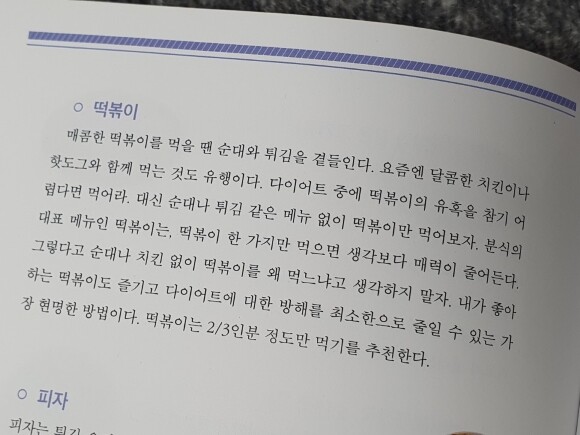 ○ 떡볶이
매콤한 떡볶이를 먹을 땐 순대와 튀김을 곁들인다. 요즘엔 달콤한 치킨이나
핫도그와 함께 먹는 것도 유행이다. 다이어트 중에 떡볶이의 유혹을 참기 어
렵다면 먹어라. 대신 순대나 튀김 같은 메뉴 없이 떡볶이만 먹어보자. 분식의
대표 메뉴인 떡볶이는, 떡볶이 한 가지만 먹으면 생각보다 매력이 줄어든다.
그렇다고 순대나 치킨 없이 떡볶이를 왜 먹느냐고 생각하지 말자. 내가 좋아
하는 떡볶이도 즐기고 다이어트에 대한 방해를 최소한으로 줄일 수 있는 가
장 현명한 방법이다. 떡볶이는 2/3인분 정도만 먹기를 추천한다.
○ 피자
피자는 튀김